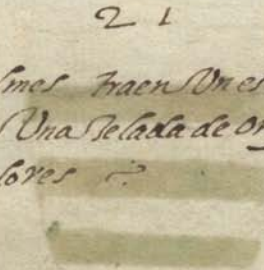 21
lmes traen Un es
Una Selada de or
lores